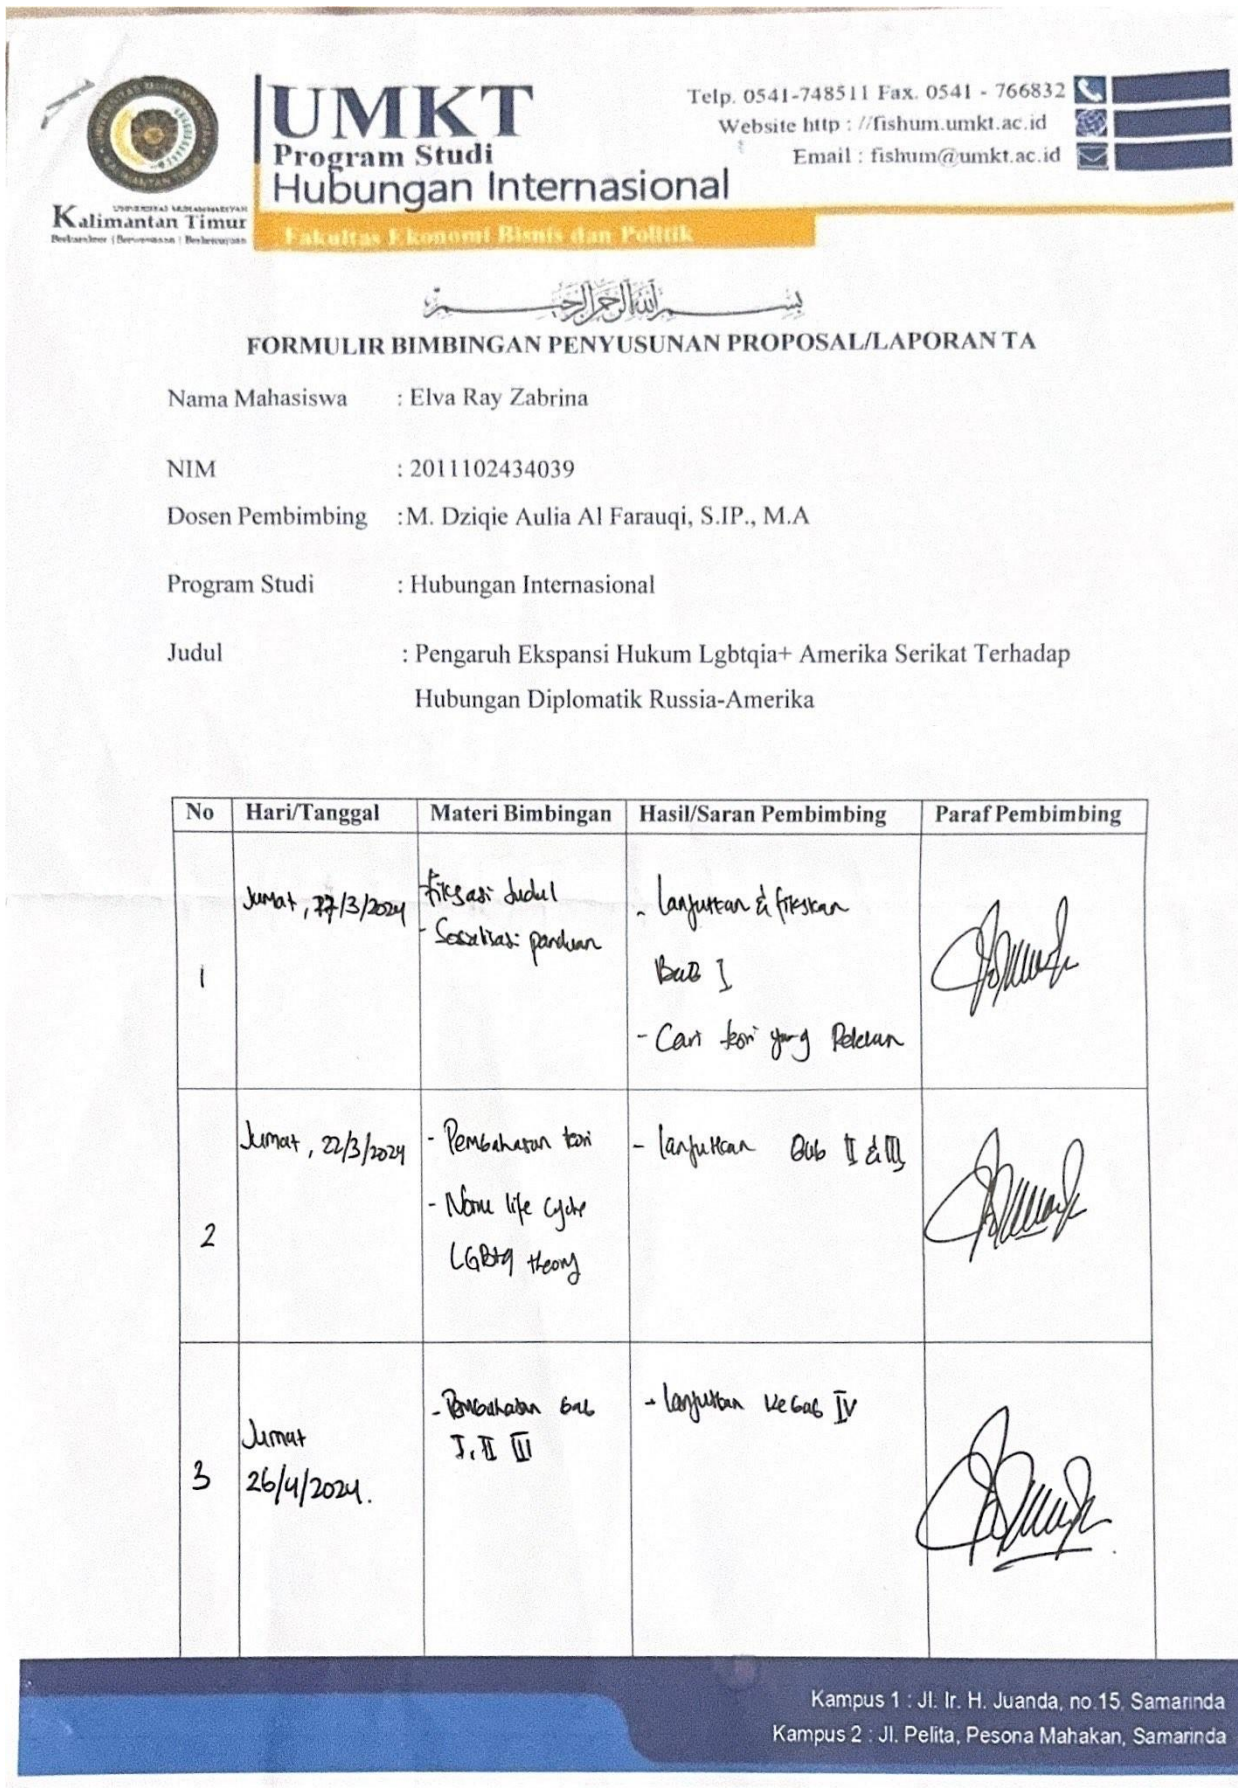 UMKT
Program Studi
Hubungan Internasional
Fakultas Ekonomi Bisnis dan Politik
UNIVERSITAS MUHAMMADIYAH
Kalimantan Timur
Berkarakter | Berwawasan | Berkemajuan
Telp. 0541-748511 Fax. 0541 - 766832
Website http : //fishum.umkt.ac.id
Email : fishum@umkt.ac.id
بسم الله الرحمن الرحيم
FORMULIR BIMBINGAN PENYUSUNAN PROPOSAL/LAPORAN TA
Nama Mahasiswa : Elva Ray Zabrina
NIM : 2011102434039
Dosen Pembimbing :M. Dziqie Aulia Al Farauqi, S.IP., M.A
Program Studi : Hubungan Internasional
Judul : Pengaruh Ekspansi Hukum Lgbtqia+ Amerika Serikat Terhadap
Hubungan Diplomatik Russia-Amerika
No Hari/Tanggal Materi Bimbingan Hasil/Saran Pembimbing Paraf Pembimbing
1
Jumat, /3/2024
- Fiksasi Judul
- Sosialisasi panduan
- Lanjutkan & fikskan
Bab I
- Cari teori yang Relevan
2
Jumat, 22/3/2024
- Pembahasan teori
- Norm life cycle
LGBTQ theory
- Lanjutkan Bab II & III
3
Jumat
26/4/2024.
- Pembahasan bab
I, II III
- Lanjutkan ke bab IV
Kampus 1 : Jl. Ir. H. Juanda, no.15, Samarinda
Kampus 2 : Jl. Pelita, Pesona Mahakan, Samarinda